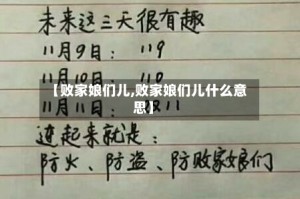 未来这三天很有趣
11月9日： 119
11月10日： 110
【败家娘们儿,败家娘们儿什么意思】
11月11日：
连起来就是：
防火、防盗、防败家娘们